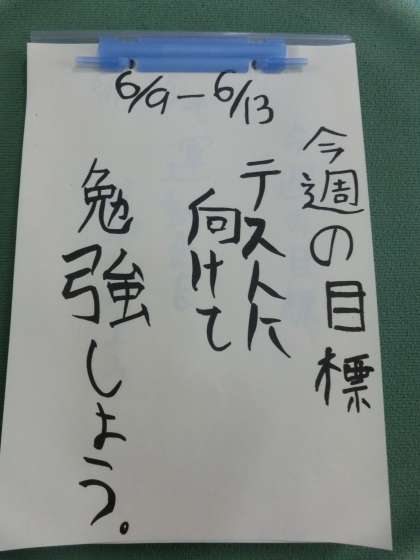 6/9-6/13
今週の目標
テストに
向けて
勉強しよう。